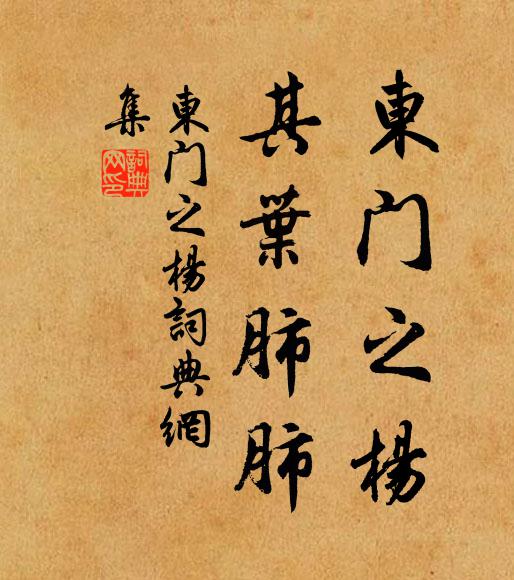 東门之楊
其葉肺肺
東门之楊詞典網
集
詞典
网印